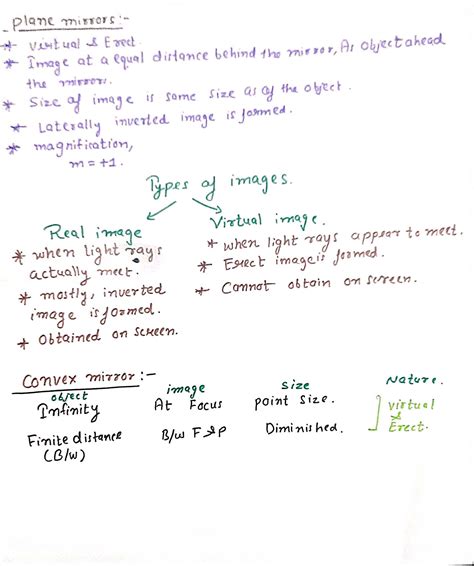 Plane mirrors:-
* Virtual & Erect.
* Image at a equal distance behind the mirror, As object ahead
the mirror.
* Size of image is same size as of the object.
* Laterally inverted image is formed.
* magnification,
m = +1.
Types of images.
Real image
* when light rays
actually meet.
* mostly, inverted
image is formed.
* Obtained on screen.
Virtual image.
* when light rays appear to meet.
* Erect image is formed.
* Cannot obtain on screen.
Convex mirror:-
object image Size Nature.
Infinity At Focus point size. Virtual
&
Finite distance B/w F & P Diminished. Erect.
(B/w)